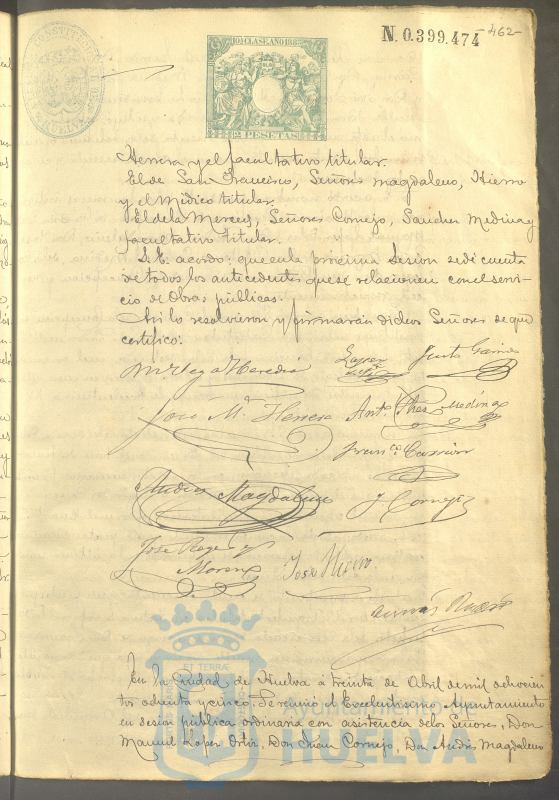 N. 0.399.474
462
10ª CLASE AÑO 188
2 PESETAS
CONSTITUCIONAL
HUELVA
Herrera y el facultativo titular.
El de San Francisco, Señores Magdaleno, Hierro
y el Médico titular.
El de la Merced, Señores Cornejo, Sanchez Medina y
facultativo titular.
S. E. acordó: que en la próxima sesion se dé cuenta
de todos los antecedentes que se relacionen con el servi-
cio de Obras públicas.
Asi lo resolvieron y firmarán dichos Señores de que
certifico:
Lopez
Justo Garrido
José Mª Herrera
Antº Shez Medina
Franco Carrion
Andrés Magdaleno
J. Cornejo
José Roge y
Moreno
José Hierro
En la Ciudad de Huelva á treinta de Abril de mil ochocien
tos ochenta y cinco: Se reunió el Excelentisimo Ayuntamiento
en sesion pública ordinaria con asistencia de los Señores, Don
Manuel Lopez Ortiz, Don Juan Cornejo, Don Andrés Magdaleno
ET TERRAE
Ayuntamiento
HUELVA